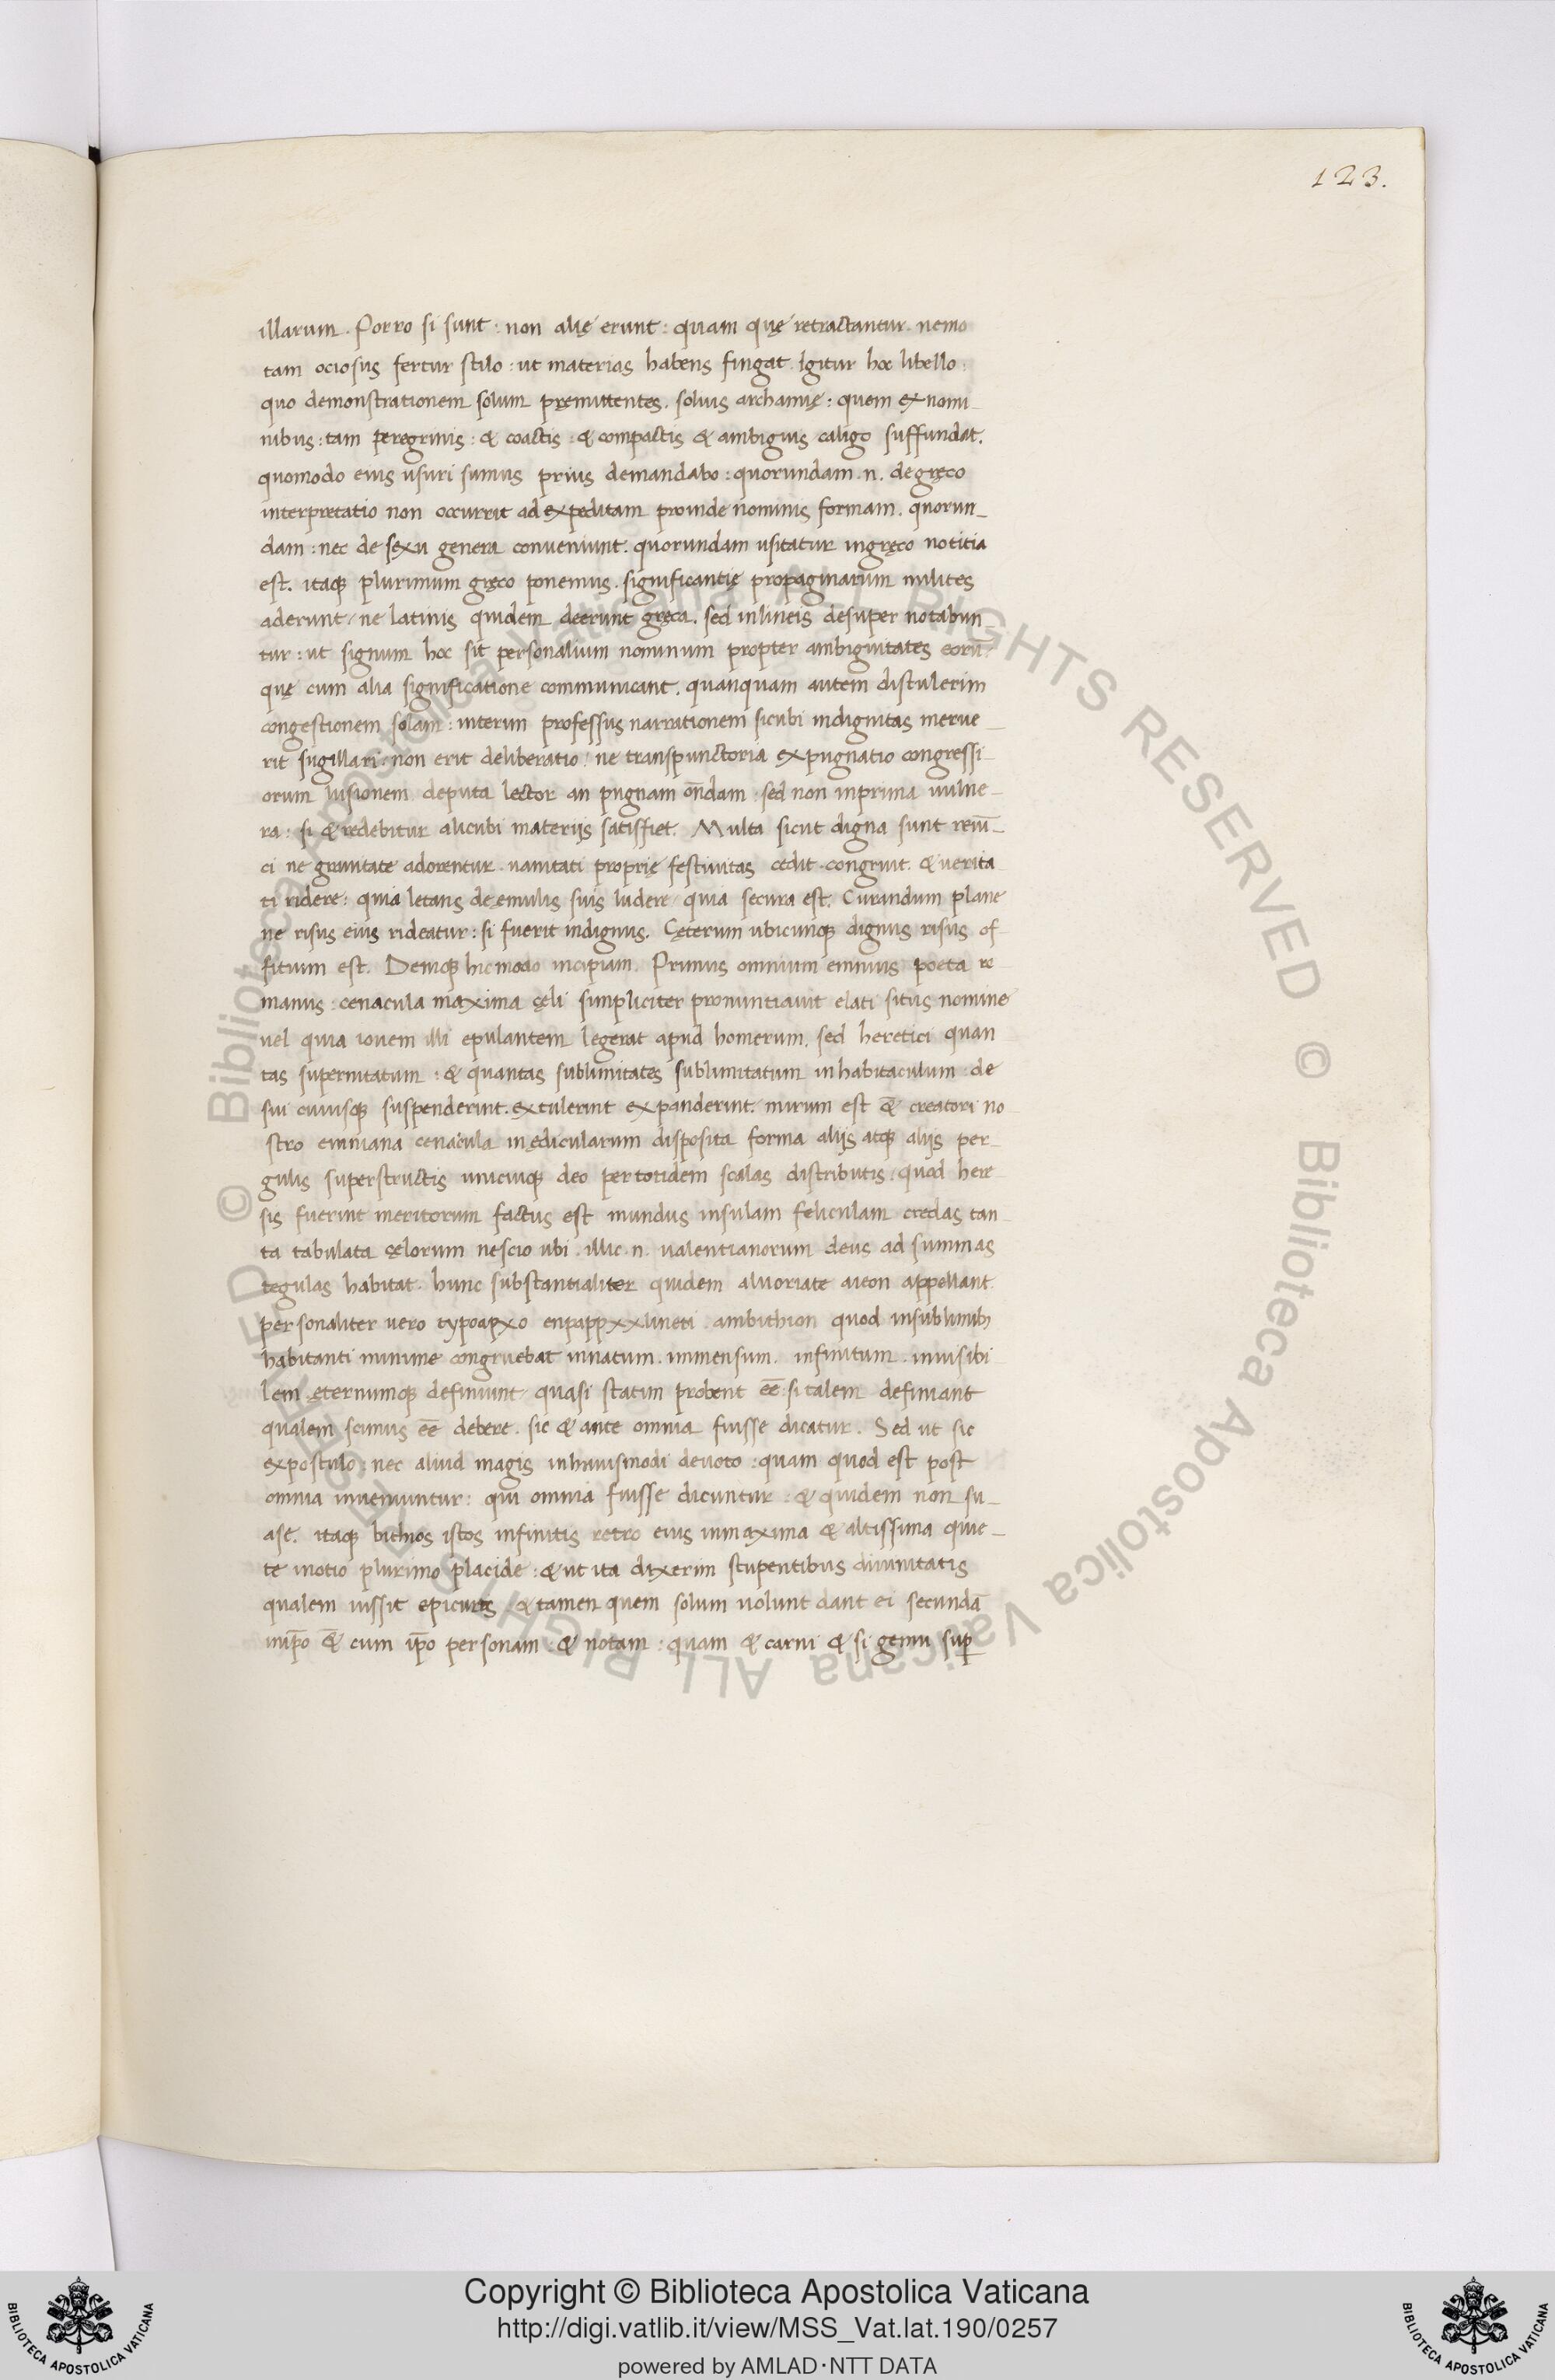 123.
illarum. Porro si sunt: non alię erunt: quam quę retractantur. nemo
tam ociosus fertur stilo: ut materias habens fingat. Igitur hoc libello:
quo demonstrationem solum pręmittentes. soluis archanię: quem ex nomi-
nibus: tam peregrinis: & coactis: & compactis & ambiguis caligo suffundat.
quomodo eius usuri sumus prius demandabo: quorundam .n. de gręco
interpretatio non occurrit ad expeditam proinde nominis formam. quorun-
dam: nec de sexu genera conveniunt. quorundam usitatur in gręco notitia
est. itaq; plurimum gręco ponemus. significantię propaginarum milites
aderunt, ne latinis quidem deerunt gręca. sed in lineis desuper notabun
tur: ut signum hoc sit personalium nominum propter ambiguitates eorū,
quę cum alia significatione communicant. quanquam autem distulerim
congestionem solam: interim professus narrationem sicubi indignitas merue-
rit sugillari, non erit deliberatio, ne transpunctoria expugnatio congressi-
orum lusionem deputa lector an pugnam on̄dam. sed non inprima uulne-
ra: si & redebitur alicubi materiis satisfiet. Multa sicut digna sunt reuī-
ci ne gravitate adorentur. vanitati proprię festivitas cedit. congruit. & verita
ti ridere: quia letans de emulis suis ludere, quia secura est. Curandum plane
ne risus eius rideatur: si fuerit indignus. Cęterum ubicunq; dignus risus of-
fitium est. Deniq; hic modo incipiam. Primus omnium ennius poeta ro
manus: cenacula maxima cęli simpliciter pronuntiauit elati situs nomine
uel quia iouem illi epulantem legerat apud homerum. sed heretici quan
tas supernitatum: & quantas sublimitates sublimitatum in habitaculum de
sui cuiusq; suspenderint. extulerint expanderint. mirum est & creatori no
stro enniana cenacula in ędicularum disposita forma aliis atq; aliis per-
gulis superstructis unicuiq; deo per totidem scalas distributis, quod here-
sis fuerint meritorum factus est mundus insulam feliculam credas tan
ta tabulata cęlorum nescio ubi. illic .n. valentianorum deus ad summas
tegulas habitat. hunc substantialiter quidem alvoriate aieon appellant
personaliter vero typoapxo enpappxxlineti. ambithion quod insublimib;
habitanti minime congruebat innatum. immensum. infinitum. invisibi
lem ęternumq; definiunt, quasi statim probent eē. si talem definiant
qualem scimus eē debere. sic & ante omnia fuisse dicatur. Sed ut sic
expostulo: nec aliud magis in huiusmodi denoto: quam quod est post
omnia inveniuntur: qui omnia fuisse dicuntur: & quidem non su-
ase. itaq; bithios istos infinitis retro eius inmaxima & altissima quie-
te inotio plurimo placide: & ut ita dixerim stupentibus divinitatis
qualem iussit epicurus. & tamen quem solum volunt dant ei secundā
in ip̄o & cum ip̄o personam: & notam: quam & carni & si genu sup
Copyright © Biblioteca Apostolica Vaticana
http://digi.vatlib.it/view/MSS_Vat.lat.190/0257
powered by AMLAD·NTT DATA
BIBLIOTECA APOSTOLICA VATICANA
BIBLIOTECA APOSTOLICA VATICANA